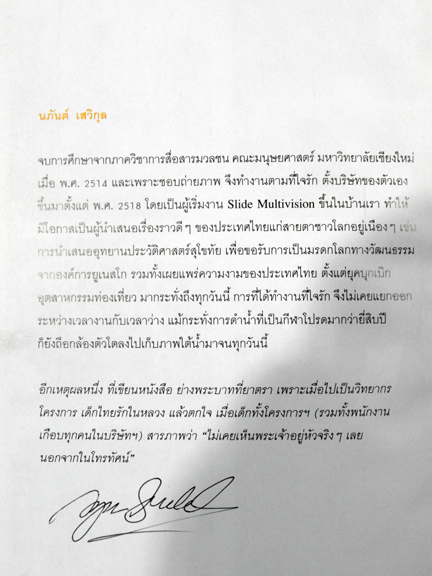 นภันต์ เสวิกุล
จบการศึกษาจากภาควิชาการสื่อสารมวลชน คณะมนุษยศาสตร์ มหาวิทยาลัยเชียงใหม่
เมื่อ พ.ศ. 2514 และเพราะชอบถ่ายภาพ จึงทำงานตามที่ใจรัก ตั้งบริษัทของตัวเอง
ขึ้นมาตั้งแต่ พ.ศ. 2518 โดยเป็นผู้เริ่มงาน Slide Multivision ขึ้นในบ้านเรา ทำให้
มีโอกาสเป็นผู้นำเสนอเรื่องราวดี ๆ ของประเทศไทยแก่สายตาชาวโลกอยู่เนือง ๆ เช่น
การนำเสนออุทยานประวัติศาสตร์สุโขทัย เพื่อขอรับการเป็นมรดกโลกทางวัฒนธรรม
จากองค์การยูเนสโก รวมทั้งเผยแพร่ความงามของประเทศไทย ตั้งแต่ยุคบุกเบิก
อุตสาหกรรมท่องเที่ยว มากระทั่งถึงทุกวันนี้ การที่ได้ทำงานที่ใจรัก จึงไม่เคยแยกออก
ระหว่างเวลางานกับเวลาว่าง แม้กระทั่งการดำน้ำที่เป็นกีฬาโปรดมากว่ายี่สิบปี
ก็ยังถือกล้องตัวโตลงไปเก็บภาพใต้น้ำมาจนทุกวันนี้
อีกเหตุผลหนึ่ง ที่เขียนหนังสือ ย่างพระบาทที่ยาตรา เพราะเมื่อไปเป็นวิทยากร
โครงการ เด็กไทยรักในหลวง แล้วตกใจ เมื่อเด็กทั้งโครงการฯ (รวมทั้งพนักงาน
เกือบทุกคนในบริษัทฯ) สารภาพว่า “ไม่เคยเห็นพระเจ้าอยู่หัวจริง ๆ เลย
นอกจากในโทรทัศน์”